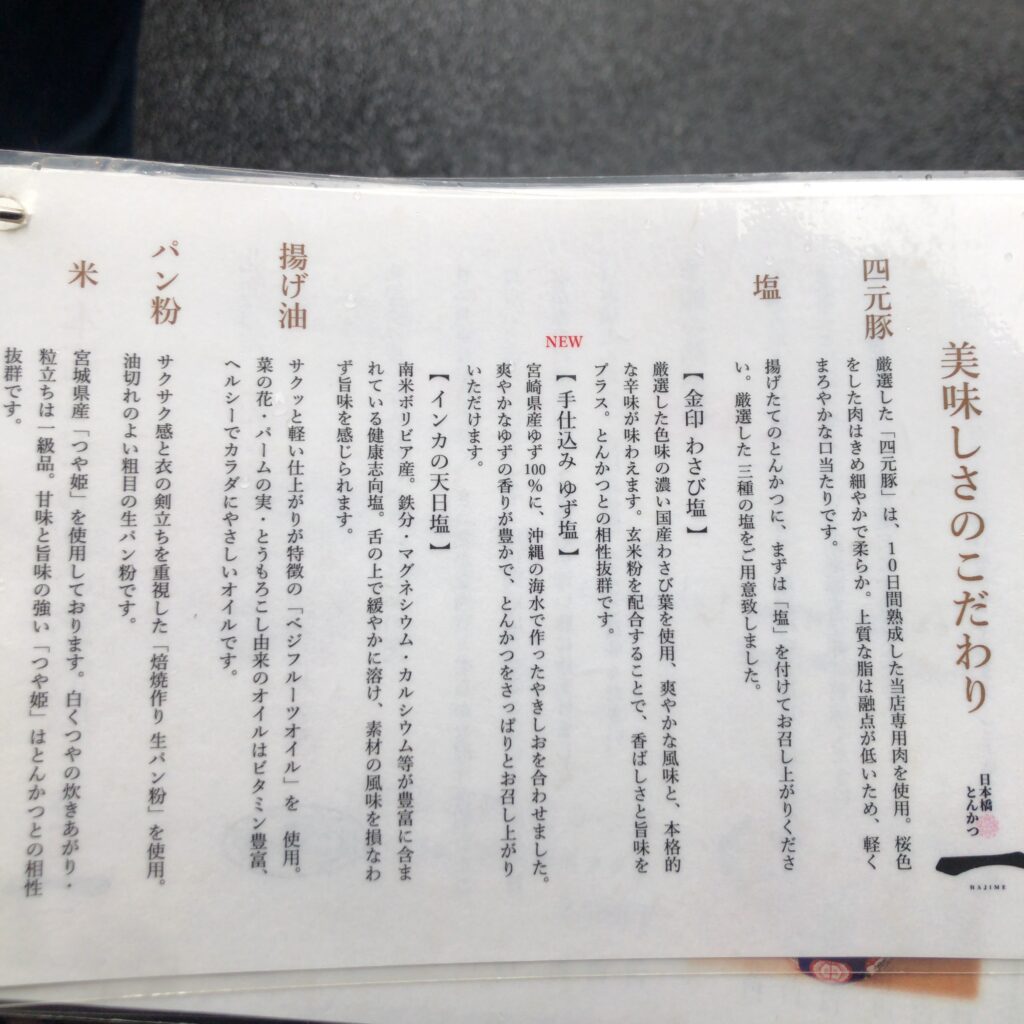 美味しさのこだわり
日本橋
とんかつ
一
HAJIME
四元豚
厳選した「四元豚」は、10日間熟成した当店専用肉を使用。桜色
をした肉はきめ細やかで柔らか。上質な脂は融点が低いため、軽く
まろやかな口当たりです。
塩
揚げたてのとんかつに、まずは「塩」を付けてお召し上がりくださ
い。厳選した三種の塩をご用意致しました。
【金印 わさび塩】
厳選した色味の濃い国産わさび葉を使用、爽やかな風味と、本格的
な辛味が味わえます。玄米粉を配合することで、香ばしさと旨味を
プラス。とんかつとの相性抜群です。
NEW
【手仕込み ゆず塩】
宮崎県産ゆず100%に、沖縄の海水で作ったやきしおを合わせました。
爽やかなゆずの香りが豊かで、とんかつをさっぱりとお召し上がり
いただけます。
【インカの天日塩】
南米ボリビア産。鉄分・マグネシウム・カルシウム等が豊富に含ま
れている健康志向塩。舌の上で緩やかに溶け、素材の風味を損なわ
ず旨味を感じられます。
揚げ油
サクッと軽い仕上がりが特徴の「ベジフルーツオイル」を 使用。
菜の花・パームの実・とうもろこし由来のオイルはビタミン豊富、
ヘルシーでカラダにやさしいオイルです。
パン粉
サクサク感と衣の剣立ちを重視した「焙焼作り 生パン粉」を使用。
油切れのよい粗目の生パン粉です。
米
宮城県産「つや姫」を使用しております。白くつやの炊きあがり・
粒立ちは一級品。甘味と旨味の強い「つや姫」はとんかつとの相性
抜群です。